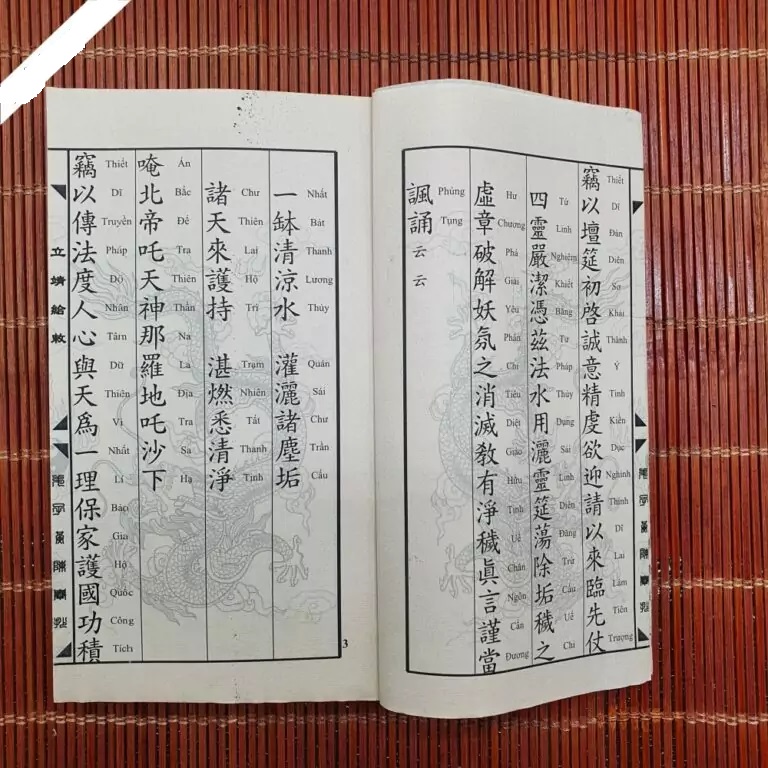 竊以壇筵初啓誠意精虔欲迎請以來臨先仗
Thiết Dĩ Đàn Diên Sơ Khải Thành Ý Tinh Kiền Dục Nghinh Thỉnh Dĩ Lai Lâm Tiên Trượng
四靈嚴潔憑茲法水用灑靈筵蕩除垢穢之
Tứ Linh Nghiêm Khiết Bằng Tư Pháp Thủy Dụng Sái Linh Diên Đãng Trừ Cấu Uế Chi
虛章破解妖氛之消滅教有淨穢眞言謹當
Hư Chương Phá Giải Yêu Phân Chi Tiêu Diệt Giáo Hữu Tịnh Uế Chân Ngôn Cẩn Đương
諷誦云云
Phúng Tụng
一缽清涼水 灌灑諸塵垢
Nhất Bát Thanh Lương Thủy Quán Sái Chư Trần Cấu
諸天來護持 湛燃悉清淨
Chư Thiên Lai Hộ Trì Trạm Nhiên Tất Thanh Tịnh
唵北帝吒天神那羅地吒沙下
Án Bắc Đế Tra Thiên Thần Na La Địa Tra Sa Hạ
竊以傳法度人心與天爲一理保家護國功積
Thiết Dĩ Truyền Pháp Độ Nhân Tâm Dữ Thiên Vi Nhất Lí Bảo Gia Hộ Quốc Công Tích
立靖給敕
3